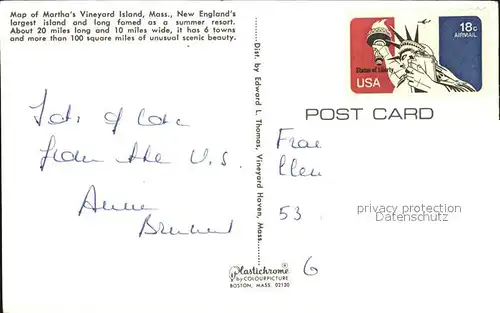 Map of Martha's Vineyard Island, Mass., New England's
largest island and long famed as a summer resort.
About 20 miles long and 10 miles wide, it has 6 towns
and more than 100 square miles of unusual scenic beauty.
Lots of love
from the U.S.
Dist. by Edward L. Thomas, Vineyard Haven, Mass.
Plastichrome®
by COLOURPICTURE
BOSTON, MASS. 02130
18c
AIRMAIL
Statue of Liberty
USA
POST CARD
Frau
53
6
privacy protection
Datenschutz